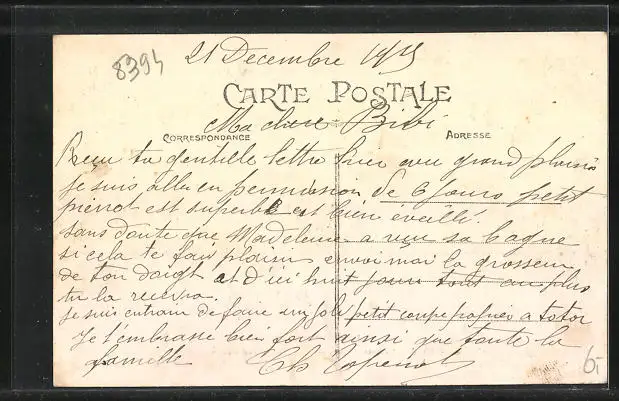 8394
21 Decembre 1915
CARTE POSTALE
Ma chere Bibi
CORRESPONDANCE
ADRESSE
Recu ta gentille lettre hier avec grand plaisir
je suis allé en permission de 6 jours petit
pierrot est superbe est bien éveillé.
sans doute que Madeleine a reçu sa bague
si cela te fais plaisir envoi moi la grosseur
de ton doigt et d'ici huit jours tout au plus
tu la recevra.
je suis entrain de faire un joli petit coupe papier a totor
Je t'embrasse bien fort ainsi que toute la
famille Ch
6,-